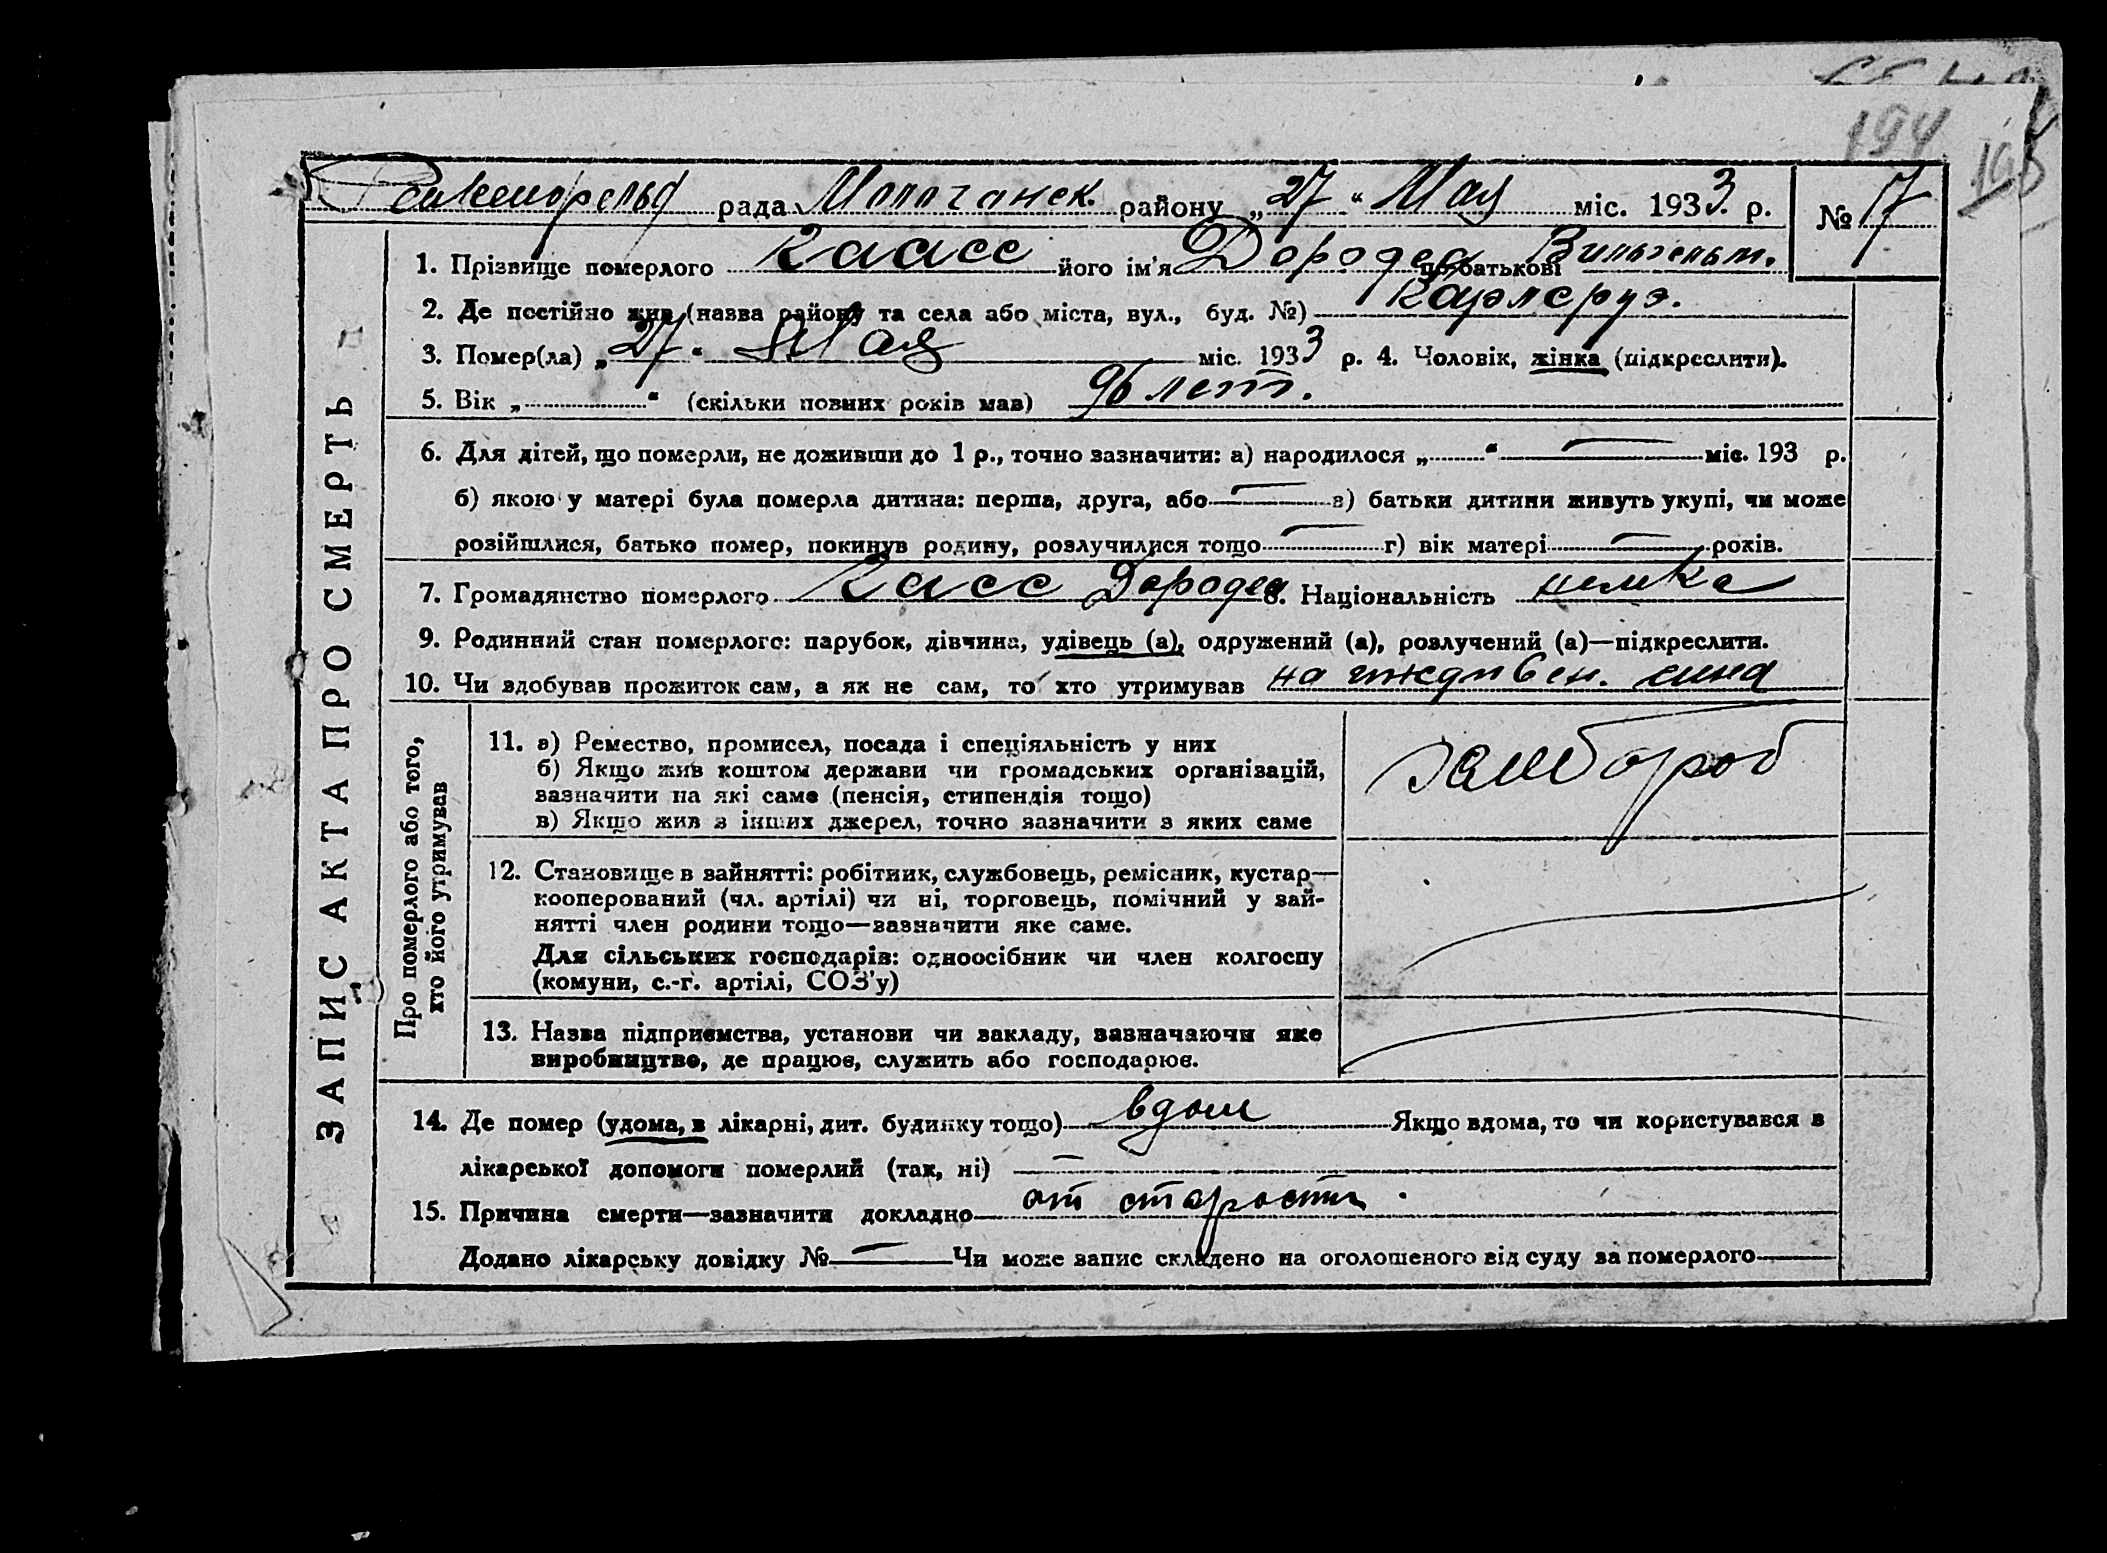 194
195
Рикенфельд рада Молочанск. району „27“ Мая міс. 1933 р. № 17
ЗАПИС АКТА ПРО СМЕРТЬ
1. Прізвище померлого Класс його ім'я Доротея по батькові Вильгельм.
2. Де постійно жив (назва району та села або міста, вул., буд. №) Карлсруэ.
3. Помер(ла) „27“ Мая міс. 1933 р. 4. Чоловік, жінка (підкреслити).
5. Вік „ “ (скільки повних років мав) 96 лет.
6. Для дітей, що померли, не доживши до 1 р., точно зазначити: а) народилося „ “ — міс. 193 р.
б) якою у матері була померла дитина: перша, друга, або — в) батьки дитини живуть укупі, чи може
розійшлися, батько помер, покинув родину, розлучилися тощо — г) вік матері — років.
7. Громадянство померлого Класс Доротея 8. Національність немка
9. Родинний стан померлого: парубок, дівчина, удівець (а), одружений (а), розлучений (а)—підкреслити.
10. Чи здобував прожиток сам, а як не сам, то хто утримував на иждивен. сина
Про померлого або того,
хто його утримував
11. а) Ремество, промисел, посада і спеціяльність у них
б) Якщо жив коштом держави чи громадських організацій,
зазначити на які саме (пенсія, стипендія тощо)
в) Якщо жив з інших джерел, точно зазначити з яких саме
12. Становище в зайнятті: робітник, службовець, ремісник, кустар—
кооперований (чл. артілі) чи ні, торговець, помічний у зай-
нятті член родини тощо—зазначити яке саме.
Для сільських господарів: одноосібник чи член колгоспу
(комуни, с.-г. артілі, СОЗ'у)
13. Назва підприємства, установи чи закладу, зазначаючи яке
виробництво, де працює, служить або господарює.
14. Де помер (удома, в лікарні, дит. будинку тощо) вдом Якщо вдома, то чи користувався з
лікарської допомоги померлий (так, ні) —
15. Причина смерти—зазначити докладно от старости.
Додано лікарську довідку № — Чи може запис складено на оголошеного від суду за померлого